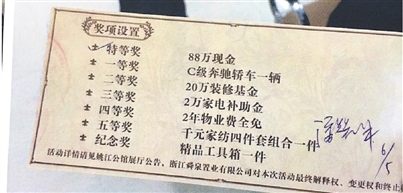 奖项设置
特等奖 88万现金
一等奖 C级奔驰轿车一辆
二等奖 20万装修基金
三等奖 2万家电补助金
四等奖 2年物业费全免
五等奖 千元家纺四件套组合一件
纪念奖 精品工具箱一件
6/5
活动详情请见姚江公馆展厅公告，浙江舜泉置业有限公司对本次活动最终解释权、变更权和终止